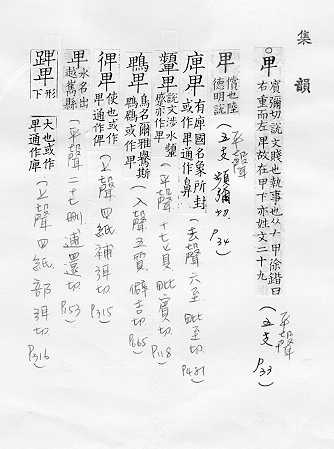 集韻
○𤰞 賓彌切說文賤也執事也从𠂇甲徐鍇曰
右重而左𤰞故在甲下亦姓文二十九
(五支 平聲 P.33)
𤰞 償也陸
德明說
(五支 頻彌切 P.34) 平聲
庳𤰞 有庳國名象所封
或作𤰞通作鼻
(去聲 六至 毗至切 P.481)
顰𤰞 說文涉水顰
蹙亦作𤰞
(平聲 十七真 毗賓切 P.118)
鵯𤰞 鳥名爾雅鸒斯
鵯鶋或作𤰞
(入聲 五質 僻吉切 P.665)
俾𤰞 使也或作
𤰞通作俾
(上聲 四紙 補弭切 P.315)
𤰞 水名出
越嶲縣
(平聲 十七 逋還切 P.153)
𨽗𤰞 形
下
大也或作
𤰞通作庳
(上聲 四紙 部弭切 P.316)